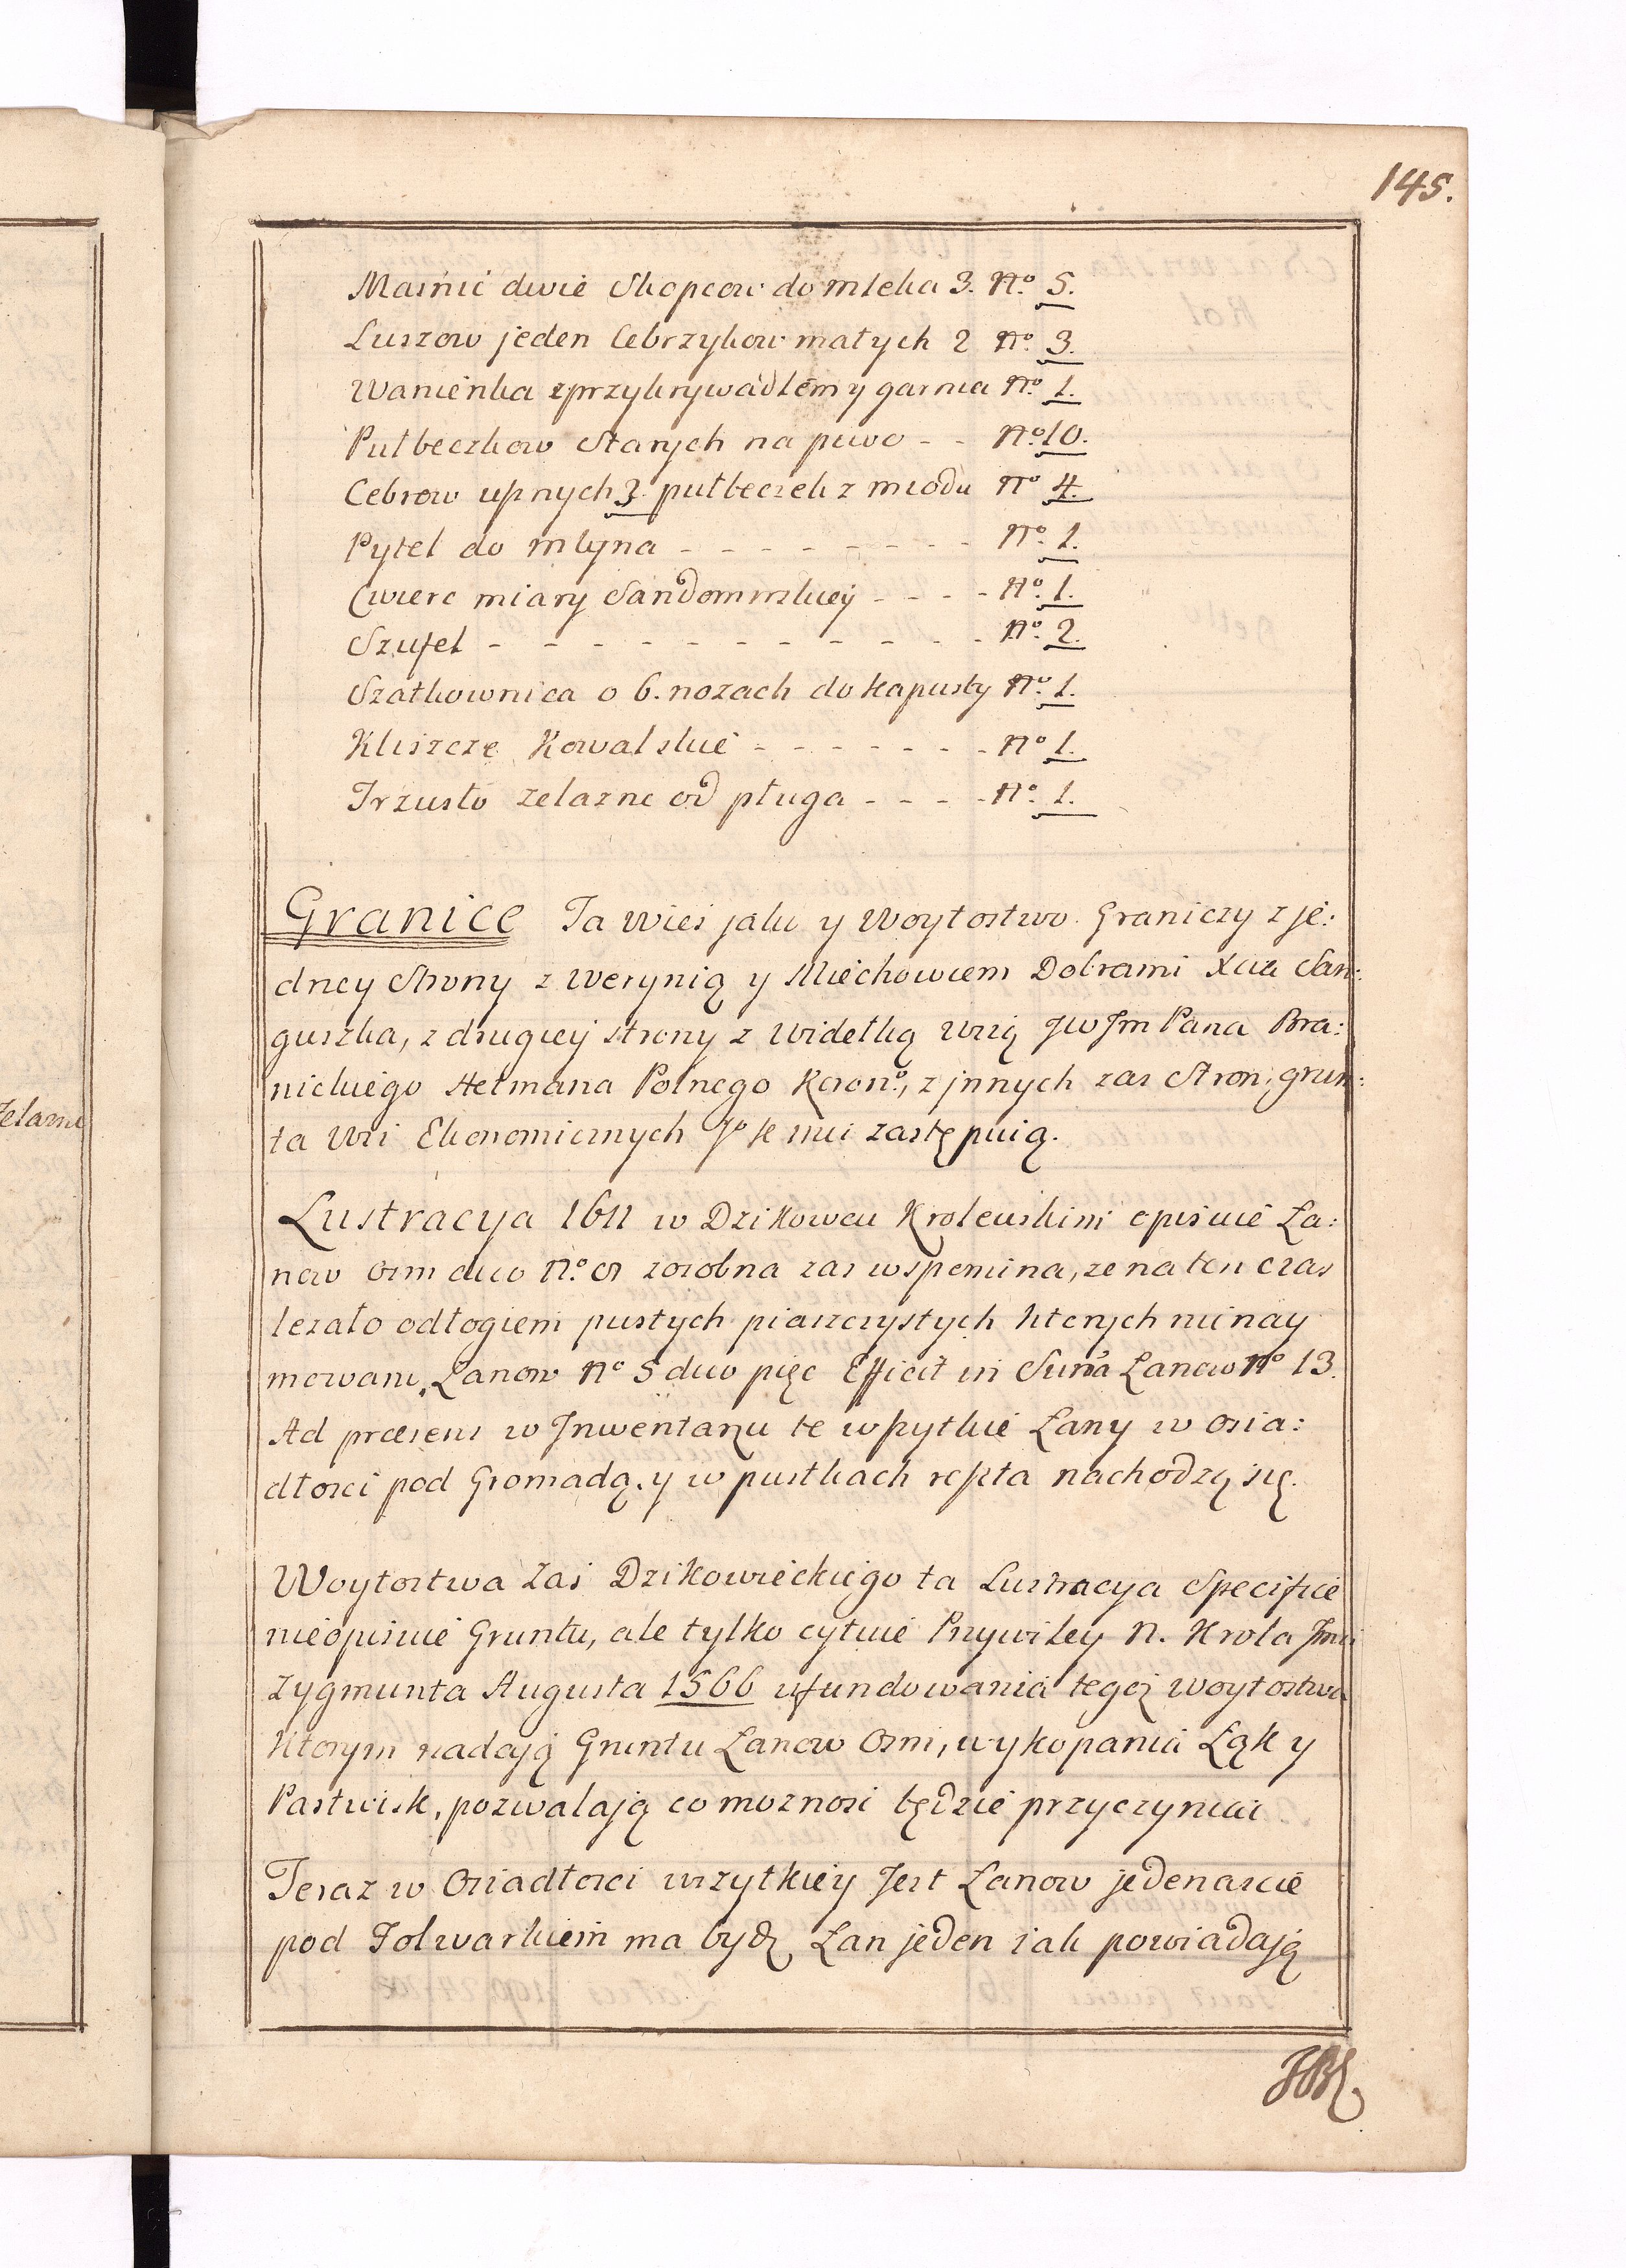 145.
Maśnić dwie Skopcow do mleka 3. No. 5.
Luszow jeden Cebrzykow małych 2 No. 3.
Wanienka z przykrywadłem y garnca No. 1.
Pułbeczkow Starych na piwo - - No. 10.
Cebrow upnych 3. pułbeczek z miodu No 4.
Pytel do młyna - - - - - - - - No. 1.
Cwierc miary Sandomirskiey - - - - No. 1.
Szufel - - - - - - - - - - - - No. 2.
Szatkownica o 6. nozach do kapusty No. 1.
Kliszcze Kowalskie - - - - - - - No 1.
Trzusło zelazne od pługa - - - - No. 1.
Granice Ta Wies jako y Woytostwo Graniczy z je:
dney Strony z Werynią y Miechowcem Dobrami Xcia San:
guszka, z drugiey strony z Widełką Wsią JW Jm Pana Bra:
nickiego Hetmana Polnego Koron., z jnnych zas Stron, grun:
ta Wsi Ekonomicznych Jo K mci zastępuią.
Lustracya 1611 w Dzikowcu Krolewskim opisuie Ła:
now osm duo No. 8 zosobna zas wspomina, ze na ten czas
lezało odłogiem pustych piasczystych ktorych nie nay
mowano, Łanow No 5 duo pięc Efficit in Suma Łanow No 13.
Ad præsens w Jnwentarzu te wszytkie Łany w osia:
dłosci pod Gromadą, y w pustkach reszta nachodzą się.
Woytostwa Zas Dzikowieckiego ta Lustracya Specifice
nieopisuie Gruntu, ale tylko cytuie Przywiley N. Krola Jmci
Zygmunta Augusta 1566 ufundowania tegoż woytostwa
Ktorym nadają Gruntu Łanow Osm, wykopania Łąk y
Pastwisk, pozwalają co moznosc będzie przyczyniac
Teraz w Osiadłosci wszytkiey Jest Łanow jedenascie
pod Folwarkiem ma bydz Łan jeden iak powiadają